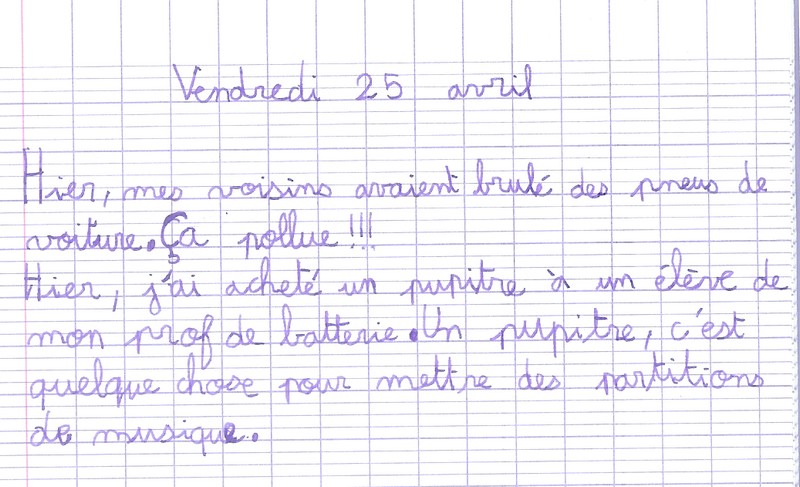 Vendredi 25 avril
Hier, mes voisins avaient brulé des pneus de
voiture. Ça pollue !!!
Hier, j'ai acheté un pupitre à un élève de
mon prof de batterie. Un pupitre, c'est
quelque chose pour mettre des partitions
de musique.